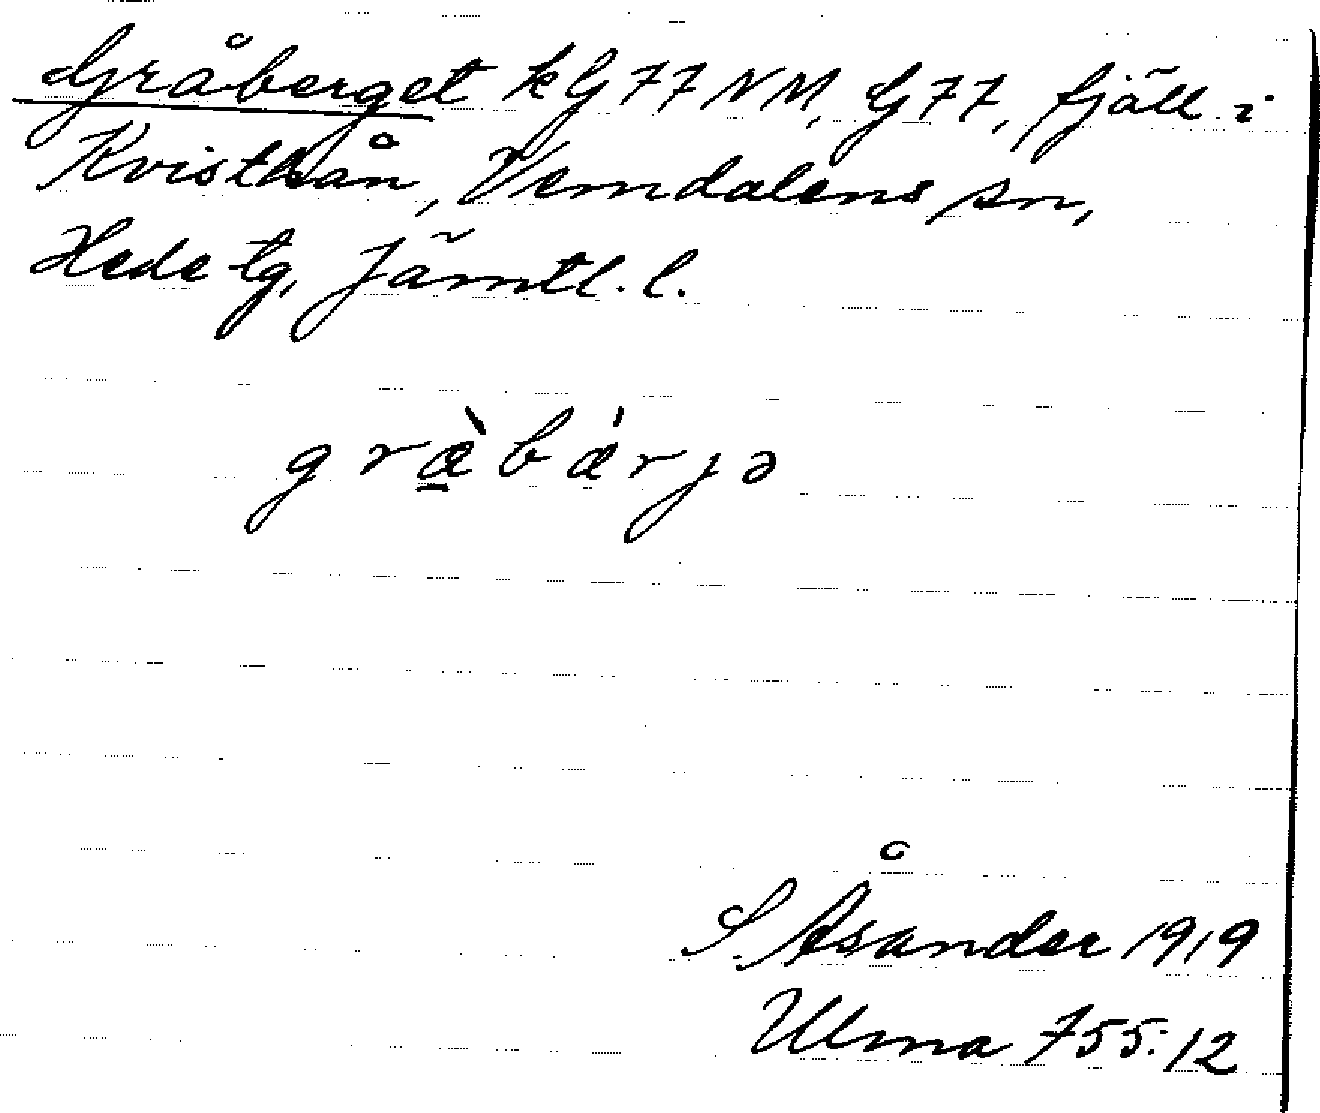 Gråberget k G 77 NM, G 77, fjäll i
Kvisthån, Vemdalens sn,
Hede tg, Jämtl. l.
græ̠̀bǽrjə
S. Åsander 1919
Ulma 755:12